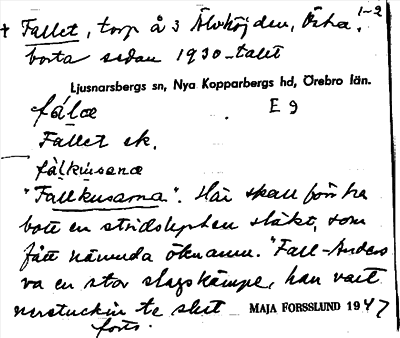 1-2
† Fallet, torp å 3 Älvhöjden, Östra,
borta sedan 1930-talet
Ljusnarsbergs sn, Nya Kopparbergs hd, Örebro län.
fálæ E 9
Fallet sk.
fàlkùsana
"Fallkusarna". Här skall förr ha
bott en stridslysten släkt, som
fått nämnda öknamn. "Fall-Anders
va en stor slagskämpe, han vart
nerstucken te slut MAJA FORSSLUND 1947
forts.